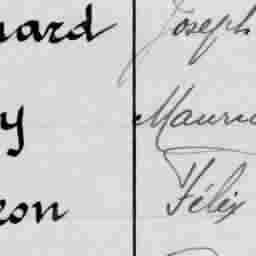 uard Joseph
y Mauric
eon Félix